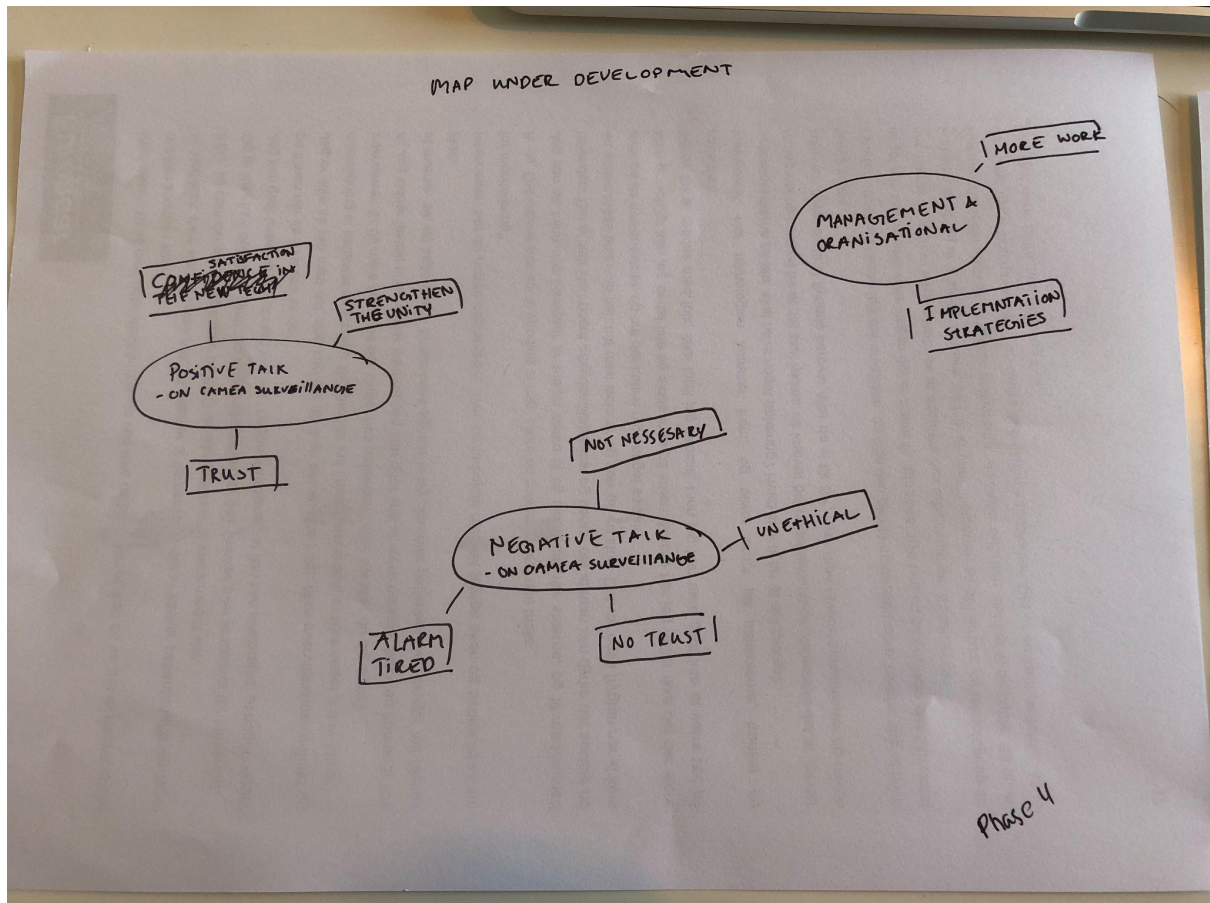 MAP UNDER DEVELOPMENT
MORE WORK
MANAGEMENT &
ORANISATIONAL
IMPLEMNTATION
STRATEGIES
SATISFACTION
CONFIDENCE IN
THE NEW TECH
STRENGTHEN
THE UNITY
POSITIVE TALK
- ON CAMEA SURVEILLANGE
TRUST
NOT NESSESARY
NEGATIVE TALK
- ON CAMEA SURVEILLANGE
UNETHICAL
ALARM
TIRED
NO TRUST
Phase 4